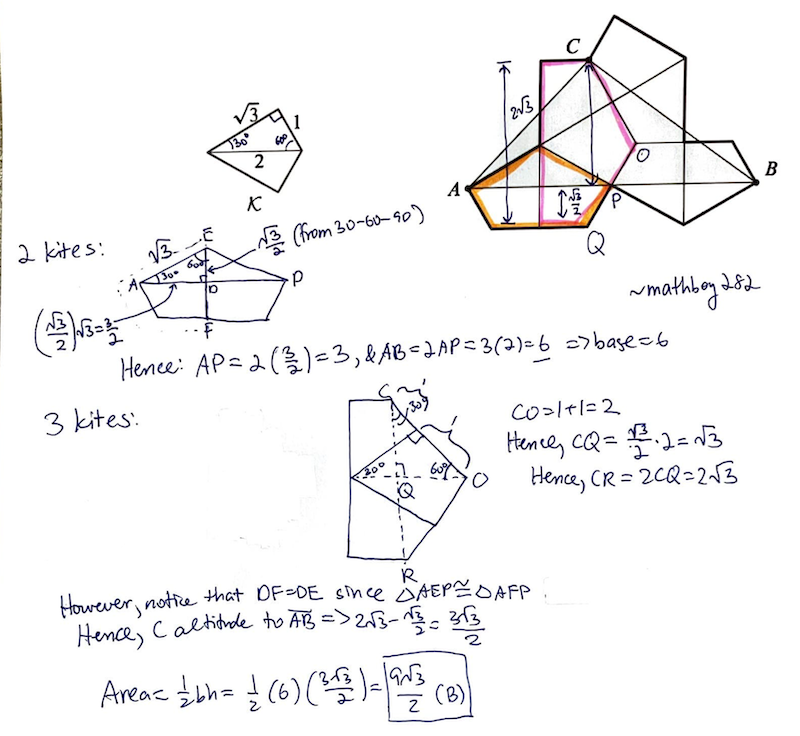 √3
1
30°
60°
2
K
C
2√3
O
A
B
√3/2
P
Q
~mathboy282
2 kites:
√3
E
√3/2 (from 30-60-90)
60°
A
30°
D
P
F
(√3/2)√3=3/2
Hence: AP = 2(3/2)=3, & AB=2AP=3(2)=6 => base=6
3 kites:
C
1
30°
1
30°
60°
Q
O
R
CO=1+1=2
Hence, CQ = √3/2 · 2=√3
Hence, CR = 2CQ=2√3
However, notice that DF=DE since △AEP≅△AFP.
Hence, C altitude to AB => 2√3-√3/2=3√3/2
Area= 1/2bh= 1/2(6)(3√3/2)=9√3/2 (B)